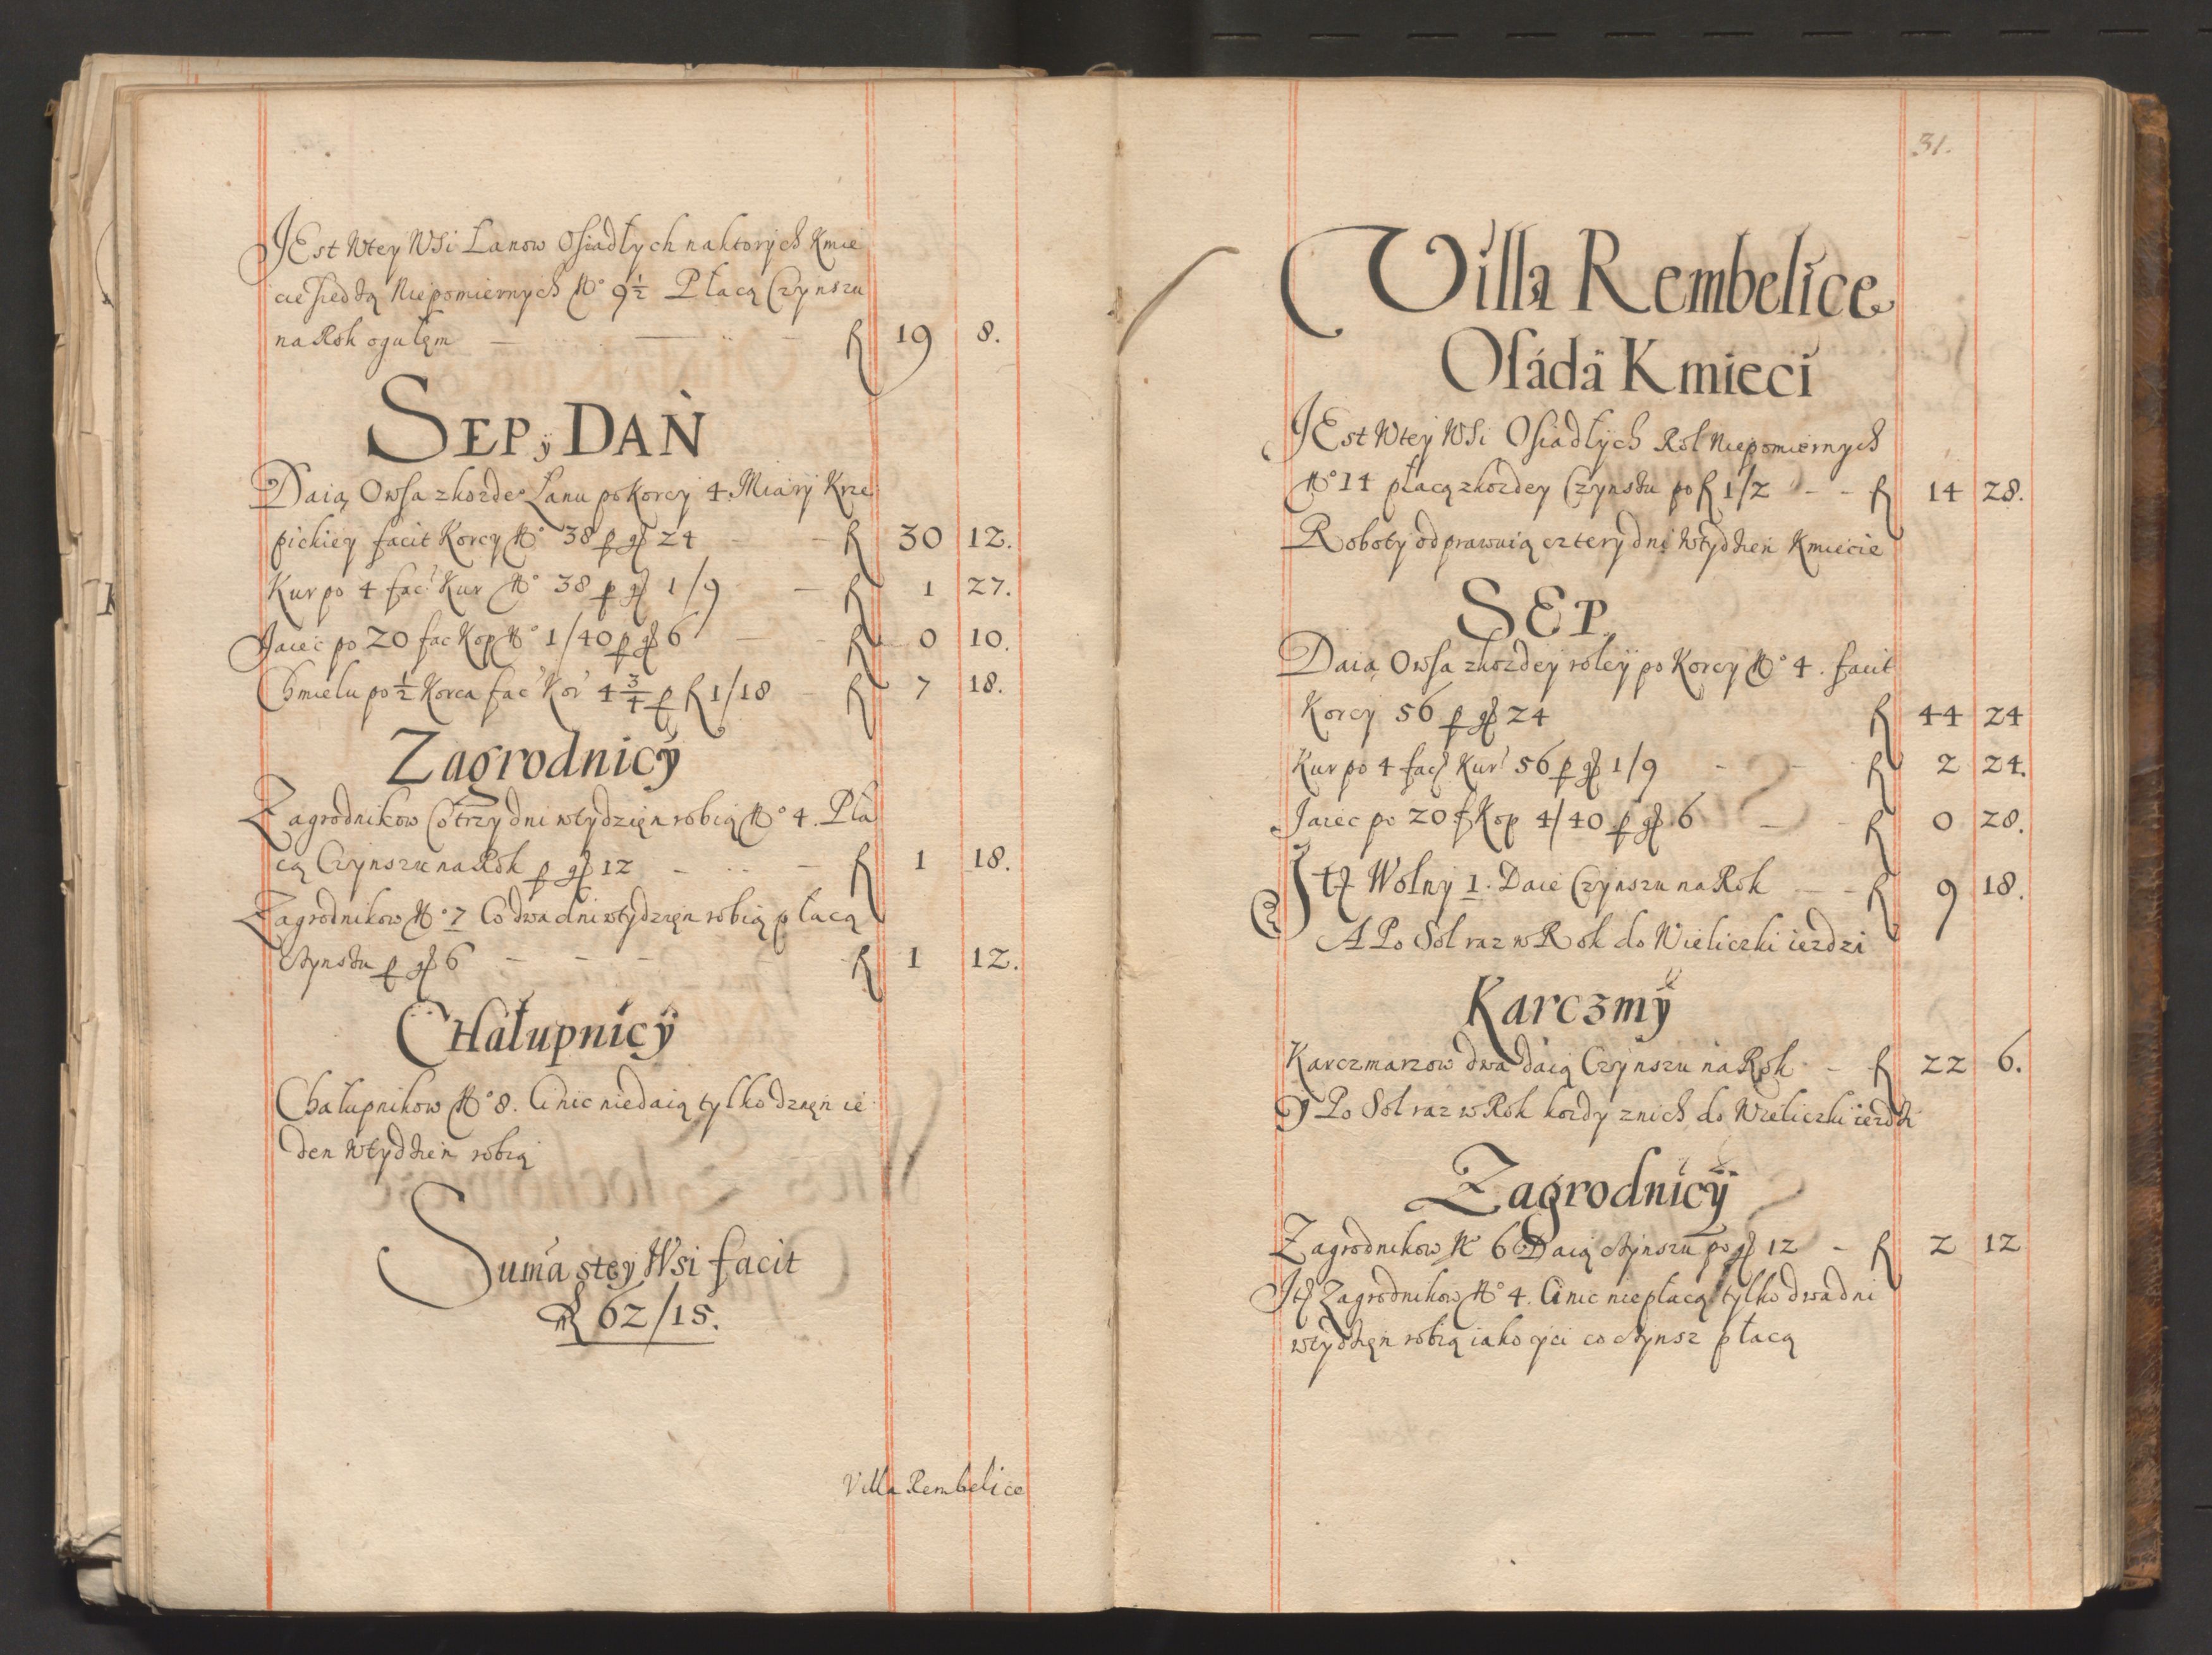 JEst Wtey WSi Lanow Osiadłych naktorych Kmie
cie siedzą Niepomiernych No 9½ Płacą Czynszu
na Rok ogułem fl 19 8.
SEP y DAŃ
Daią Owsa zkożdeo Lanu po Korcy 4 Miary Krze
pickiey facit Korcy No 38 p gr 24 fl 30 12.
Kur po 4 fact Kur No 38 p gr 1/9 fl 1 27.
Jaiec po 20 fac Kop No 1/40 p gr 6 fl 0 10.
Chmielu po ½ Korca fac Kor 4¾ p fl 1/18 fl 7 18.
Zagrodnicÿ
Zagrodnikow Co trzy dni wtydzięn robią No 4. Pła
cą Czynszu na Rok p gr 12 fl 1 18.
Zagrodnikow No 7 Co dwa dni wtydzięn robią płacą
czynszu p gr 6 fl 1 12.
CHałupnicÿ
Chałupnikow No 8. Ci nic niedaią tylko dzięń ie
den wtydzień robią
Suma stey Wsi facit
fl 62/15.
Villa Rembelice
31.
Villa Rembelice
Osáda Kmieci
JEst Wtey WSi Osiadłych Rol Niepomiernych
No 14 płacą zkożdey Czynszu po fl 1/2 fl 14 28.
Roboty odprawuią cztery dni wtydzień Kmiecie
SEP.
Daią Owsa zkozdey roley po Korcy No 4. facit
Korcy 56 p gr 24 fl 44 24
Kur po 4 fact Kur 56 p gr 1/9 fl 2 24.
Jaiec po 20 f Kop 4/40 p gr 6 fl 0 28.
Itz Wolny 1. Daie Czynszu na Rok fl 9 18.
A Po Sol raz w Rok do Wieliczki iezdzi
Karczmÿ
Karczmarzow dwa daią Czynszu na Rok fl 22 6.
Y Po Sol raz w Rok kozdy znich do Wieliczki iezdzi
Zagrodnicÿ
Zagrodnikow No 6 Daią czynszu po gr 12 fl 2 12
Itz Zagrodnikow No 4. Ci nic niepłacą tylko dwa dni
wtydzięn robią iako y ci co czynsz płacą